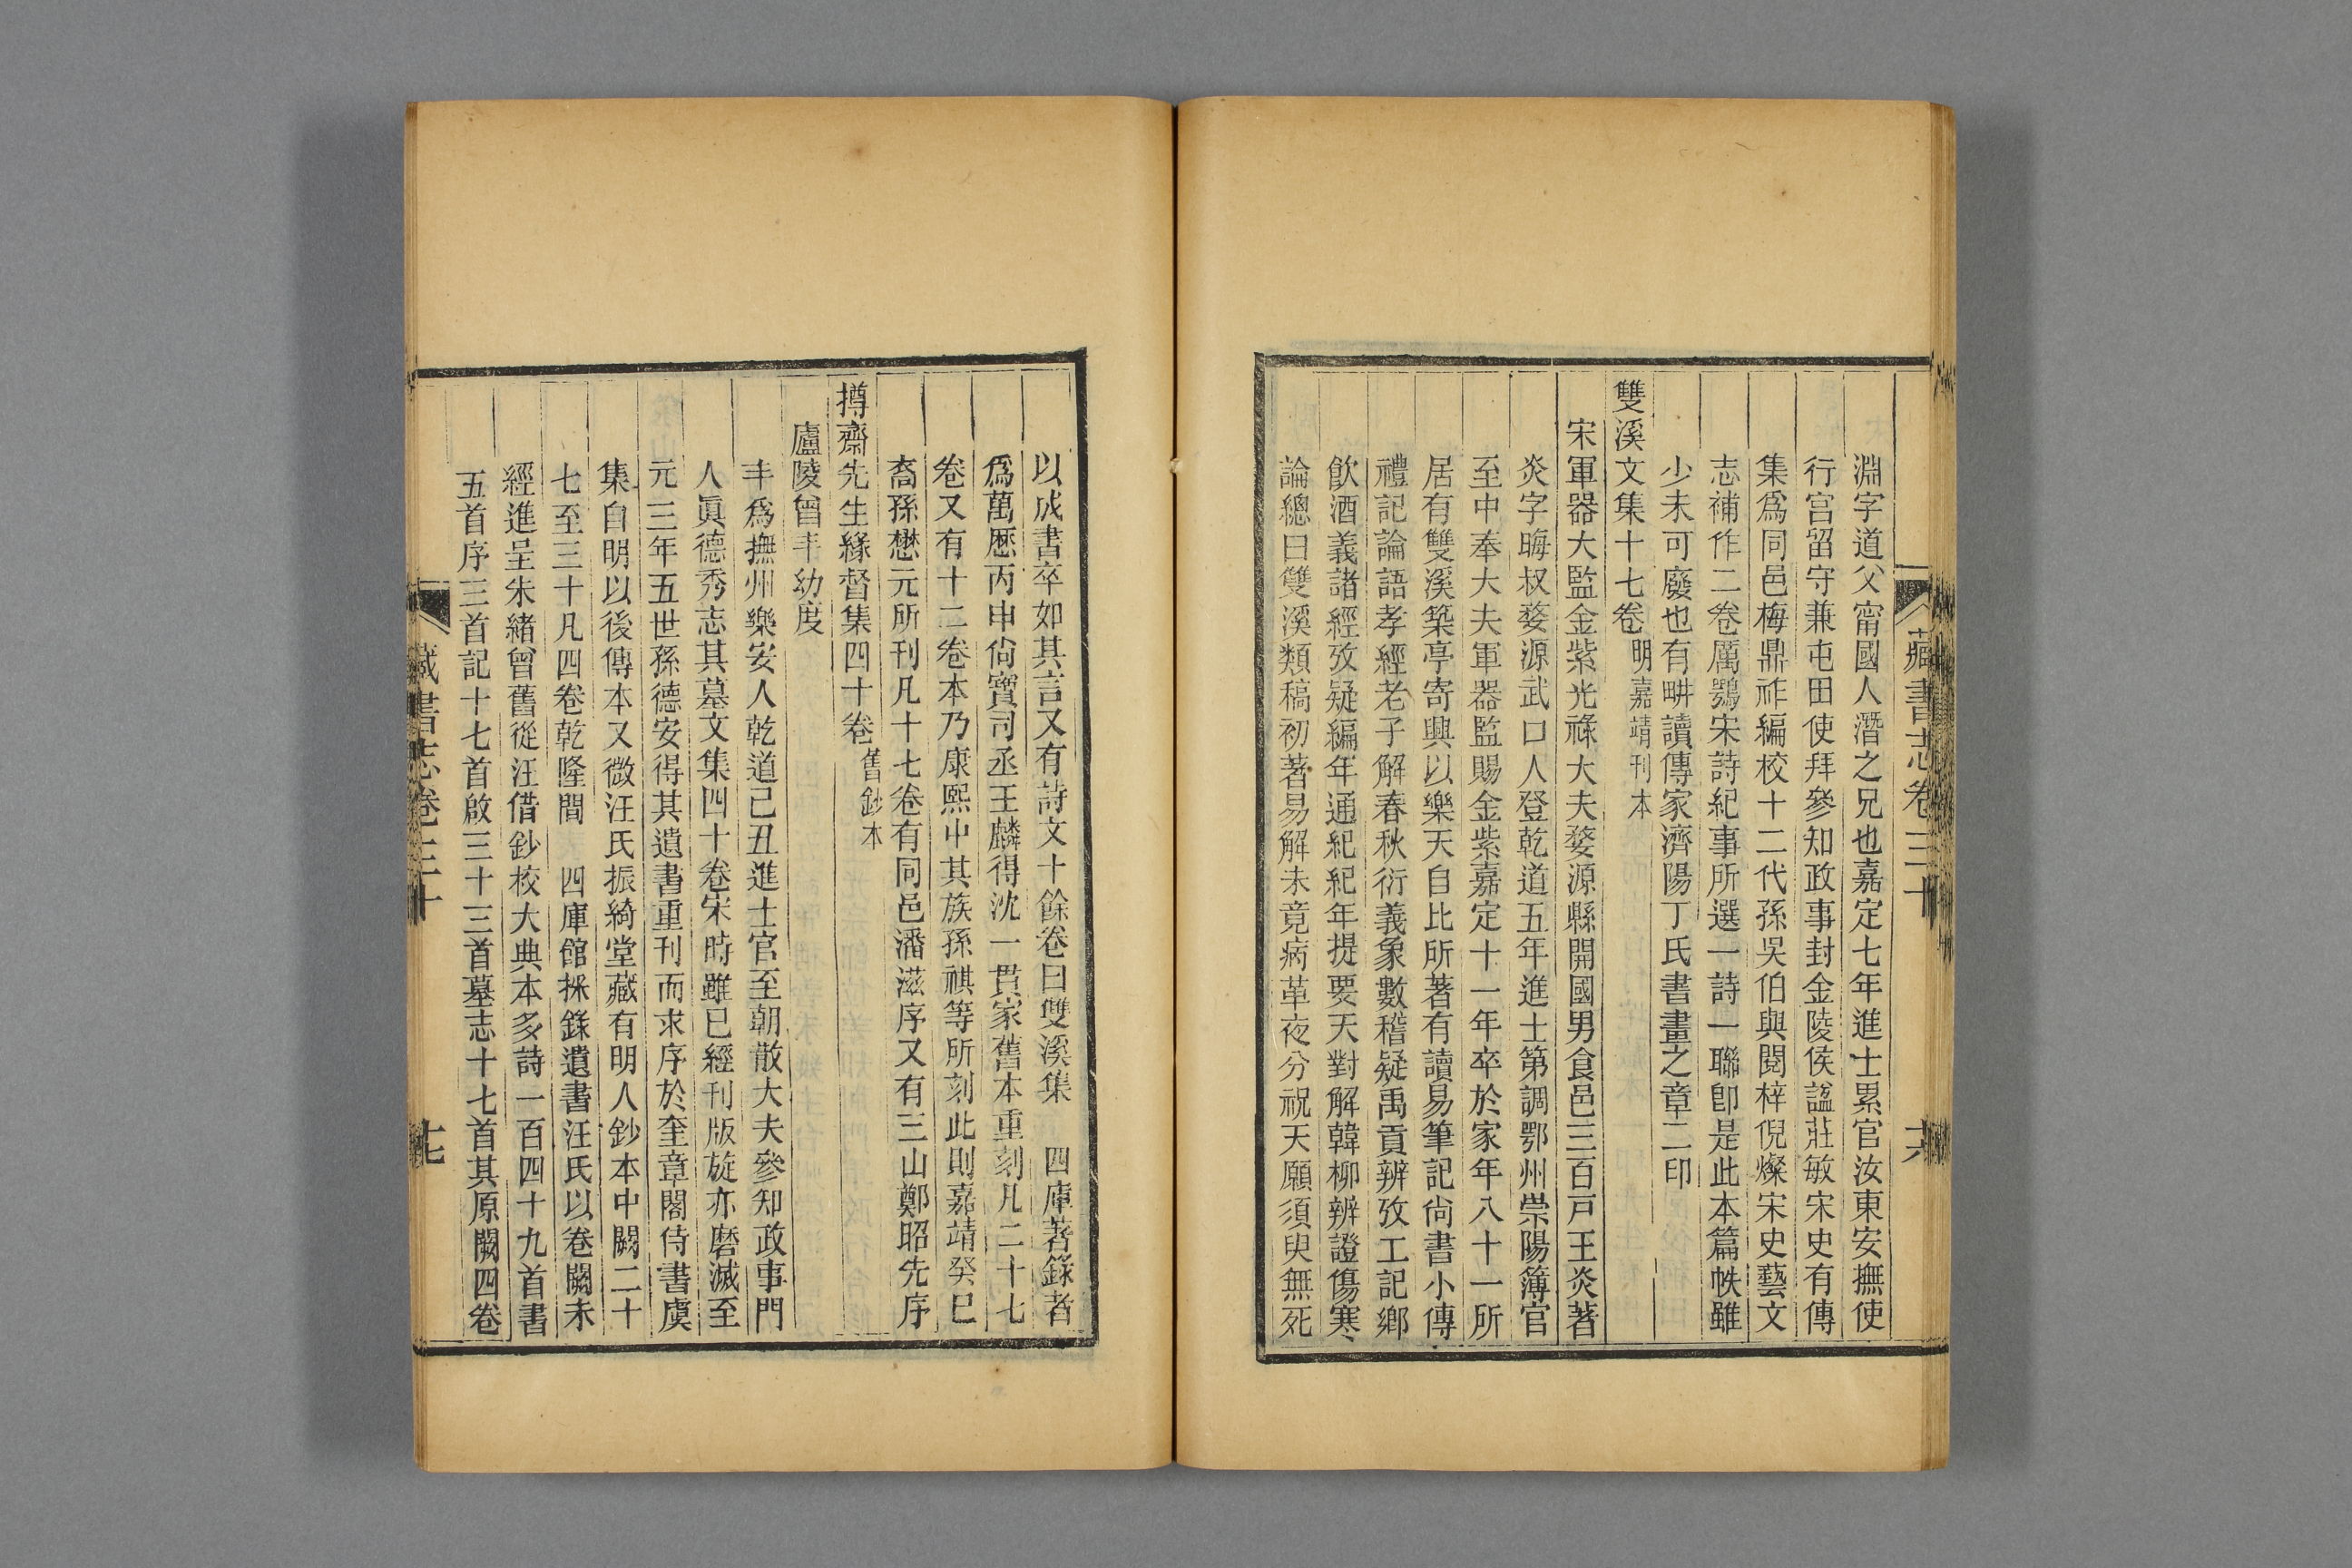 藏書志卷三十
十六
淵字道父甯國人潛之兄也嘉定七年進士累官汝東安撫使
行宮留守兼屯田使拜參知政事封金陵侯諡莊敏宋史有傳
集爲同邑梅鼎祚編校十二代孫吳伯與閱梓倪燦宋史藝文
志補作二卷厲鶚宋詩紀事所選一詩一聯卽是此本篇帙雖
少未可廢也有畊讀傳家濟陽丁氏書畫之章二印
雙溪文集十七卷 明嘉靖刊本
宋軍器大監金紫光祿大夫婺源縣開國男食邑三百戸王炎著
炎字晦叔婺源武口人登乾道五年進士第調鄂州崇陽簿官
至中奉大夫軍器監賜金紫嘉定十一年卒於家年八十一所
居有雙溪築亭寄興以樂天自比所著有讀易筆記尙書小傳
禮記論語孝經老子解春秋衍義象數稽疑禹貢辨攷工記鄉
飮酒義諸經攷疑編年通紀紀年提要天對解韓柳辨證傷寒
論總曰雙溪類稿初著易解未竟病革夜分祝天願須臾無死
以成書卒如其言又有詩文十餘卷曰雙溪集 四庫著錄者
爲萬厯丙申尙寶司丞王麟得沈一貫家舊本重刻凡二十七
卷又有十二卷本乃康熙中其族孫祺等所刻此則嘉靖癸巳
裔孫懋元所刊凡十七卷有同邑潘滋序又有三山鄭昭先序
撙齋先生緣督集四十卷 舊鈔本
廬陵曾丰幼度
丰爲撫州樂安人乾道己丑進士官至朝散大夫參知政事門
人眞德秀志其墓文集四十卷宋時雖已經刊版旋亦磨滅至
元三年五世孫德安得其遺書重刊而求序於奎章閣侍書虞
集自明以後傳本又微汪氏振綺堂藏有明人鈔本中闕二十
七至三十凡四卷乾隆間 四庫館採錄遺書汪氏以卷闕未
經進呈朱緒曾舊從汪借鈔校大典本多詩一百四十九首書
五首序三首記十七首啟三十三首墓志十七首其原闕四卷
藏書志卷三十
十七